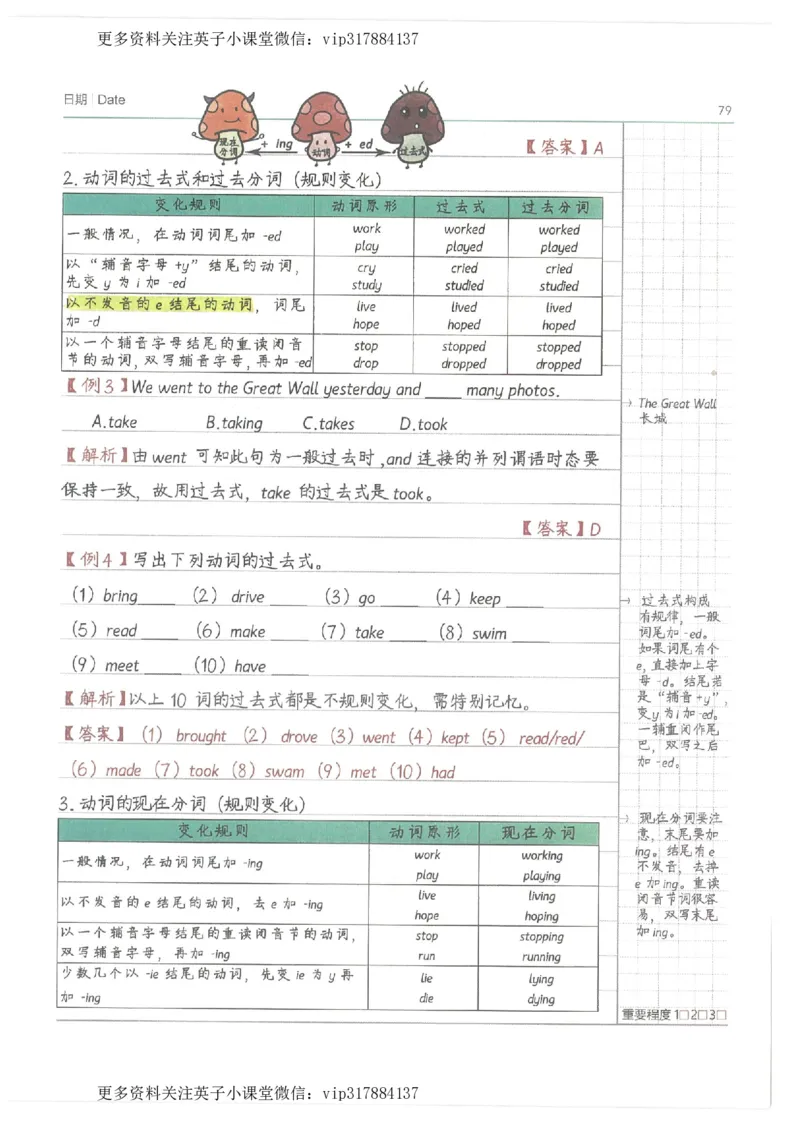 更多资料关注英子小课堂微信：vip317884137
日期 Date
79
现在分词 + ing 动词 + ed 过去式
【答案】A
2.动词的过去式和过去分词（规则变化）
变化规则 动词原形 过去式 过去分词
一般情况，在动词词尾加 -ed work worked worked
play played played
以“辅音字母+y”结尾的动词， cry cried cried
先变 y 为 i 加 -ed study studied studied
以不发音的 e 结尾的动词，词尾 live lived lived
加 -d hope hoped hoped
以一个辅音字母结尾的重读闭音 stop stopped stopped
节的动词,双写辅音字母,再加 -ed drop dropped dropped
【例3】We went to the Great Wall yesterday and ____ many photos.
A.take B.taking C.takes D.took
→ The Great Wall
长城
【解析】由went 可知此句为一般过去时,and连接的并列谓语时态要
保持一致，故用过去式，take 的过去式是took。
【答案】D
【例4】写出下列动词的过去式。
（1）bring____ （2） drive ____ （3）go ____ （4）keep ____
（5）read ____ （6）make ____ （7）take ____ （8）swim ____
（9）meet ____ （10）have ____
【解析】以上 10 词的过去式都是不规则变化，需特别记忆。
【答案】（1） brought （2） drove （3）went （4）kept （5） read/red/
（6）made （7）took （8）swam （9）met （10）had
→ 过去式构成
有规律，一般
词尾加 -ed。
如果词尾有个
e,直接加上字
母 -d。结尾若
是“辅音+y”，
变y为i加-ed。
一辅重闭作尾
巴，双写之后
加 -ed。
3.动词的现在分词（规则变化）
变化规则 动词原形 现在分词
一般情况，在动词词尾加 -ing work working
play playing
以不发音的 e 结尾的动词，去 e 加 -ing live living
hope hoping
以一个辅音字母结尾的重读闭音节的动词， stop stopping
双写辅音字母，再加 -ing run running
少数几个以 -ie 结尾的动词，先变 ie 为 y 再 lie lying
加 -ing die dying
→ 现在分词要注
意，末尾要加
ing。结尾有e
不发音，去掉
e 加ing。重读
闭音节词很容
易，双写末尾
加ing。
重要程度 1□2□3□
更多资料关注英子小课堂微信：vip317884137